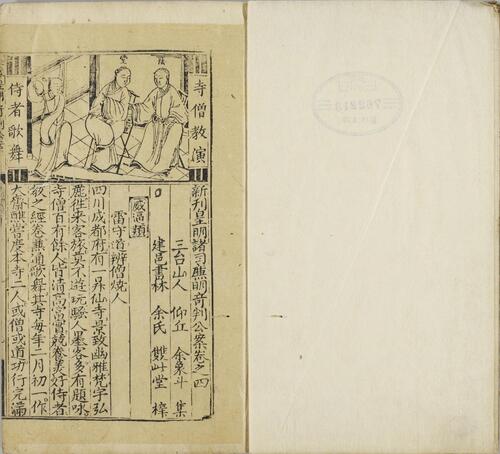 寺僧教演
侍者歌舞
新刊皇明諸司廉明奇判公案卷之四
三台山人 仰止 余象斗 集
建邑書林 余氏 雙峰堂 梓
威逼類
雷守道辨僧燒人
四川成都府有一昇仙寺景致幽雅梵宇弘
麗徃來客旅莫不遊玩騷人墨客多有題咏
寺僧百有餘人皆清高富實競養美好侍者
教之經卷兼通歌舞其寺每年二月初一作
大齋醮當度本寺二人或僧或道功行完滿
762213